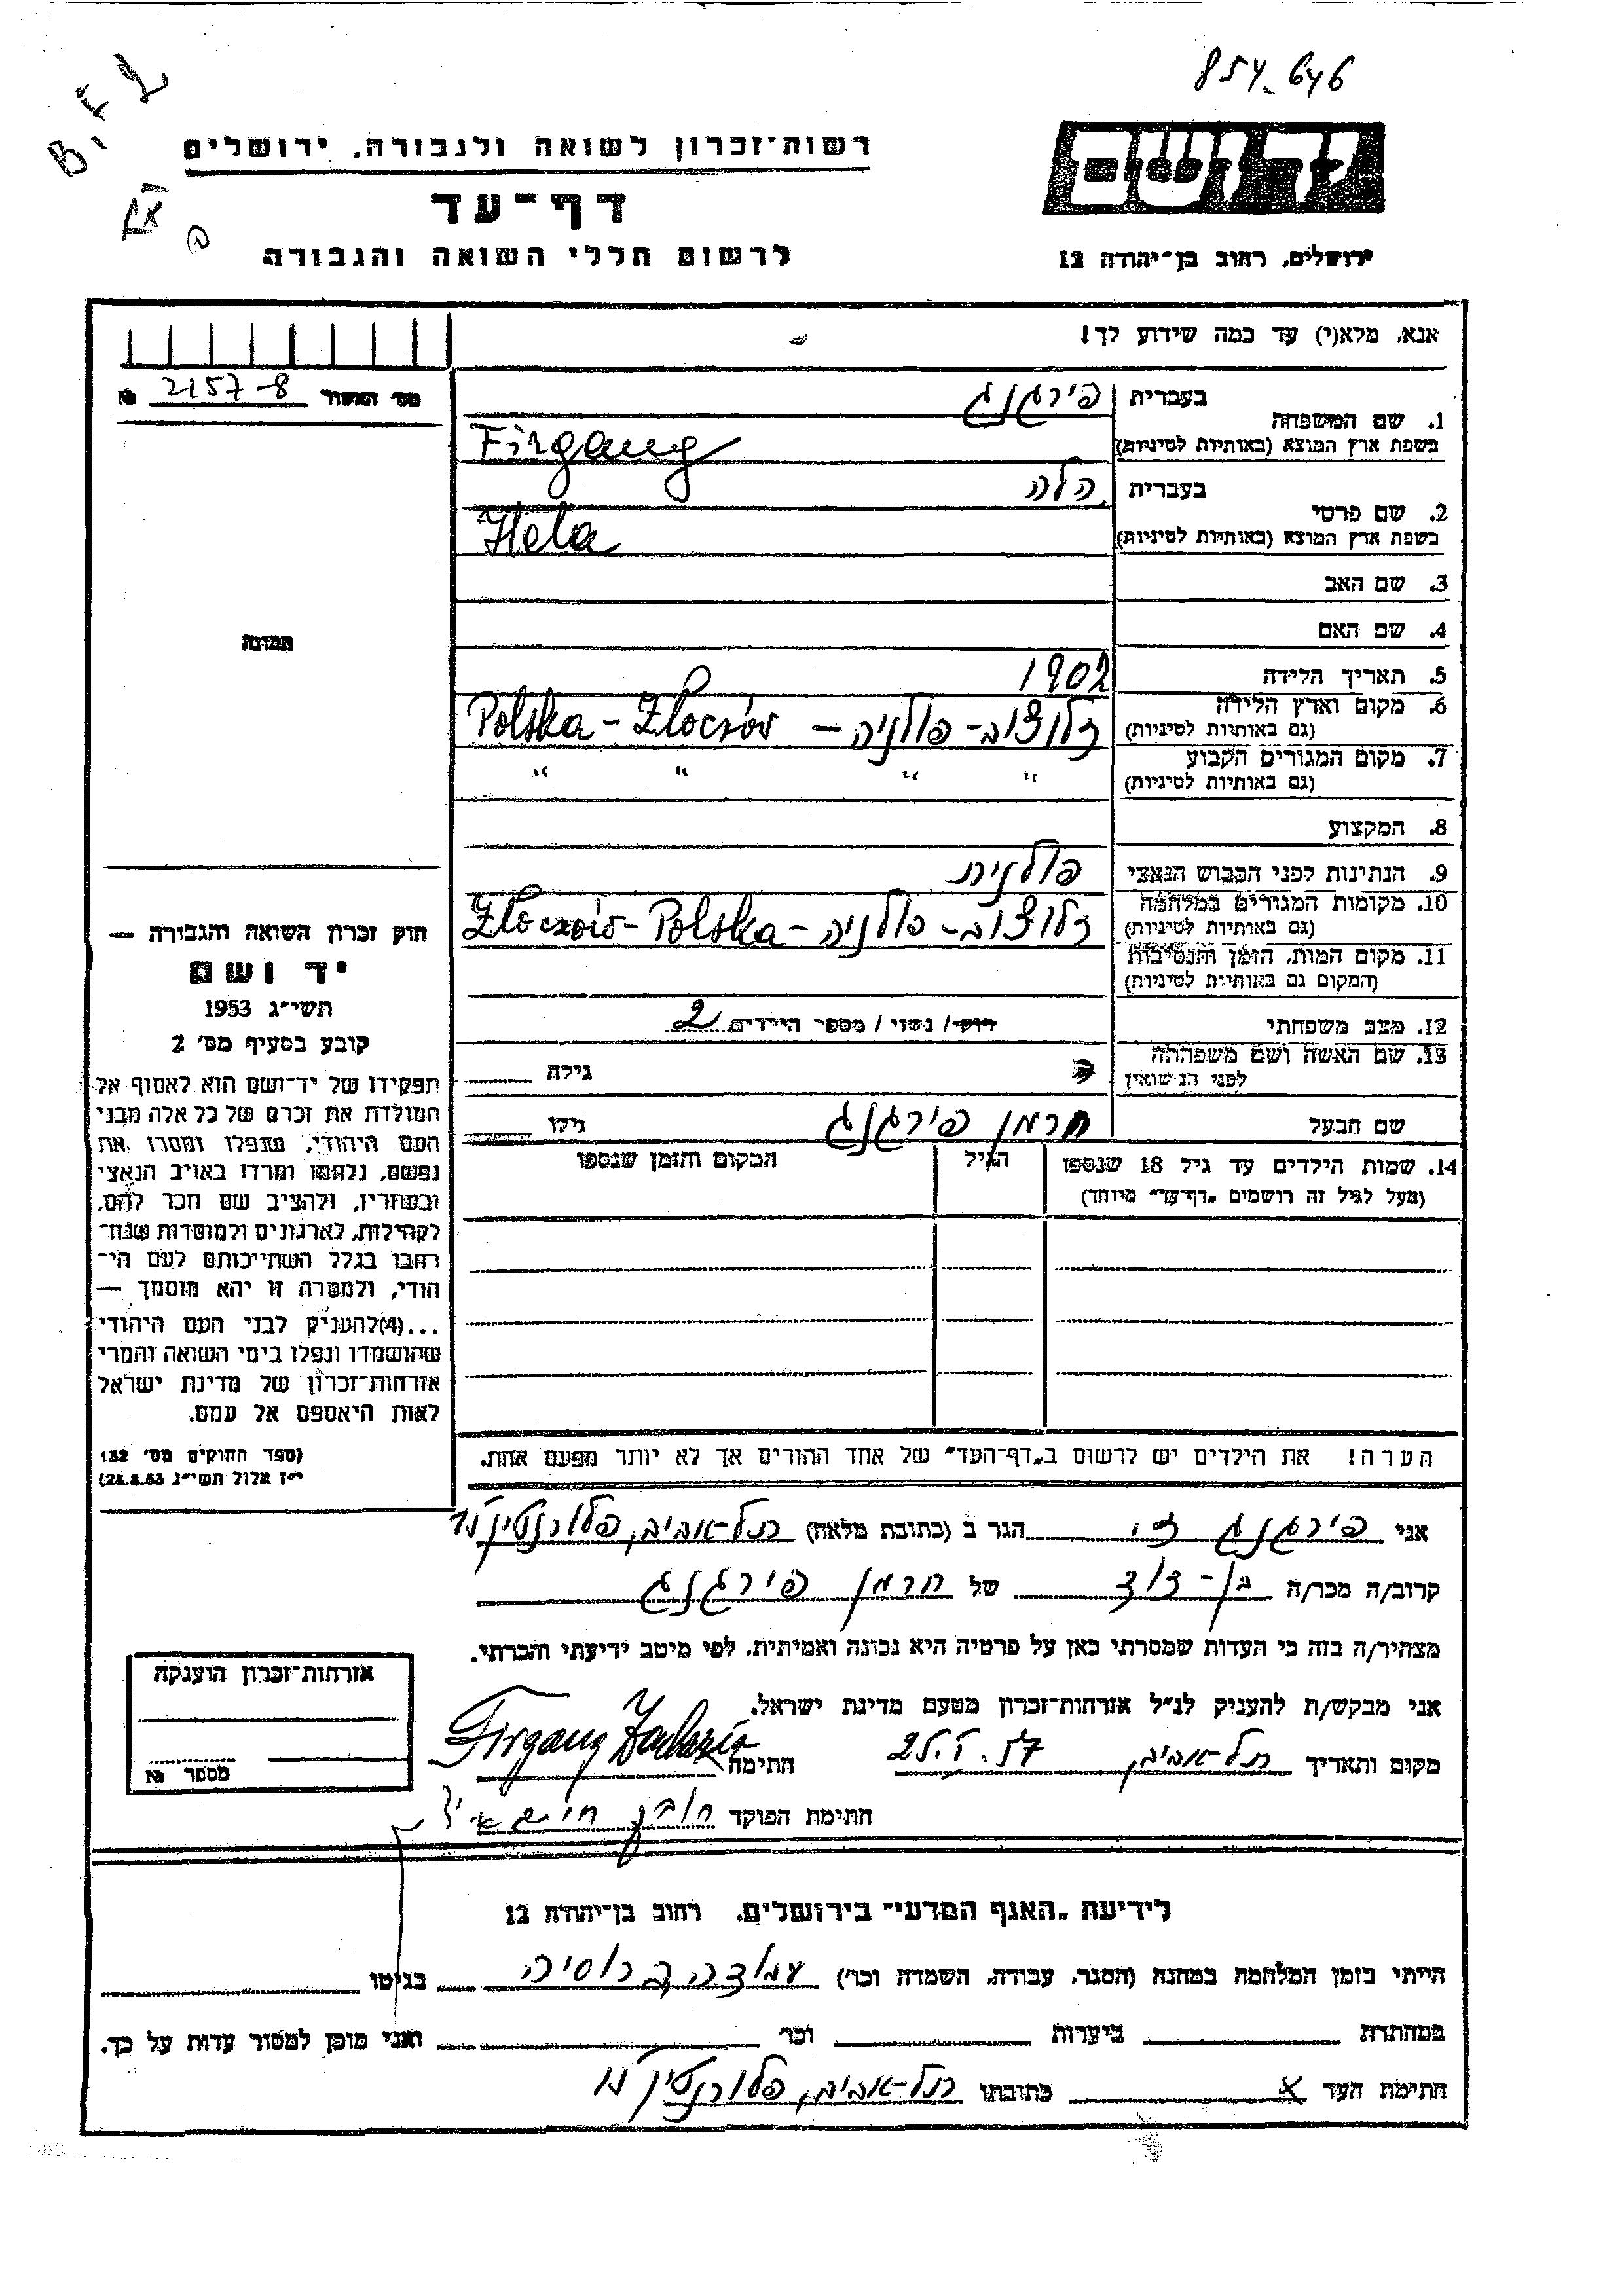 854.646
B.F2
רשות־זכרון לשואה ולגבורה, ירושלים
יד ושם
דף־עד
לרשום חללי השואה והגבורה
ירושלים, רחוב בן־יהודה 12
אנא, מלא(י) עד כמה שידוע לך!
מס׳ האשור 2157-8 №
בעברית פירגנג
1. שם המשפחה
בשפת ארץ המוצא (באותיות לטיניות) Firgang
בעברית הלה
2. שם פרטי
בשפת ארץ המוצא (באותיות לטיניות) Hela
3. שם האב
4. שם האם
תמונה
5. תאריך הלידה 1902
6. מקום וארץ הלידה
(גם באותיות לטיניות) זלוצ׳וב - פולניה - Polska - Złoczów
7. מקום המגורים הקבוע " " " "
(גם באותיות לטיניות)
8. המקצוע
9. הנתינות לפני הכבוש הנאצי פולנית
10. מקומות המגורים במלחמה
(גם באותיות לטיניות) זלוצ׳וב - פולניה - Złoczów - Polska
11. מקום המות, הזמן והנסיבות
(המקום גם באותיות לטיניות)
12. מצב משפחתי רוק/ נשוי / מספר הילדים 2
13. שם האשה ושם משפחתה
לפני הנשואין גילה
שם הבעל הרמן פירגנג גילו
14. שמות הילדים עד גיל 18 שנספו הגיל המקום והזמן שנספו
(מעל לגיל זה רושמים „דף־עד״ מיוחד)
הערה! את הילדים יש לרשום ב„דף־העד״ של אחד ההורים אך לא יותר מפעם אחת.
חוק זכרון השואה והגבורה —
יד ושם
תשי״ג 1953
קובע בסעיף מס׳ 2
תפקידו של יד־ושם הוא לאסוף אל
המולדת את זכרם של כל אלה מבני
העם היהודי, שנפלו ומסרו את
נפשם, נלחמו ומרדו באויב הנאצי
ובעוזריו, ולהציב שם וזכר להם,
לקהילות, לארגונים ולמוסדות שנח־
רבו בגלל השתייכותם לעם הי־
הודי, ולמטרה זו יהא מוסמך —
...(4)להעניק לבני העם היהודי
שהושמדו ונפלו בימי השואה והמרי
אזרחות־זכרון של מדינת ישראל
לאות היאספם אל עמם.
(ספר החוקים מס׳ 132
י״ז אלול תשי״ג 28.8.53)
אני פירגנג הגר ב (כתובת מלאה) תל־אביב, פלורנטין
קרוב/ה מכר/ה בן־דוד של הרמן פירגנג
מצהיר/ה בזה כי העדות שמסרתי כאן על פרטיה היא נכונה ואמיתית, לפי מיטב ידיעתי והכרתי.
אני מבקש/ת להעניק לנ״ל אזרחות־זכרון מטעם מדינת ישראל.
מקום ותאריך תל־אביב, 57 חתימה Firgang
חתימת הפוקד
אזרחות־זכרון הוענקה
מספר №
לידיעת „האגף המדעי״ בירושלים, רחוב בן־יהודה 12
הייתי בזמן המלחמה במחנה (הסגר, עבודה, השמדה וכו׳) עבודה ברוסיה בגיטו
במחתרת ביערות וכו׳ ואני מוכן למסור עדות על כך.
חתימת העד x כתובתו תל־אביב, פלורנטין